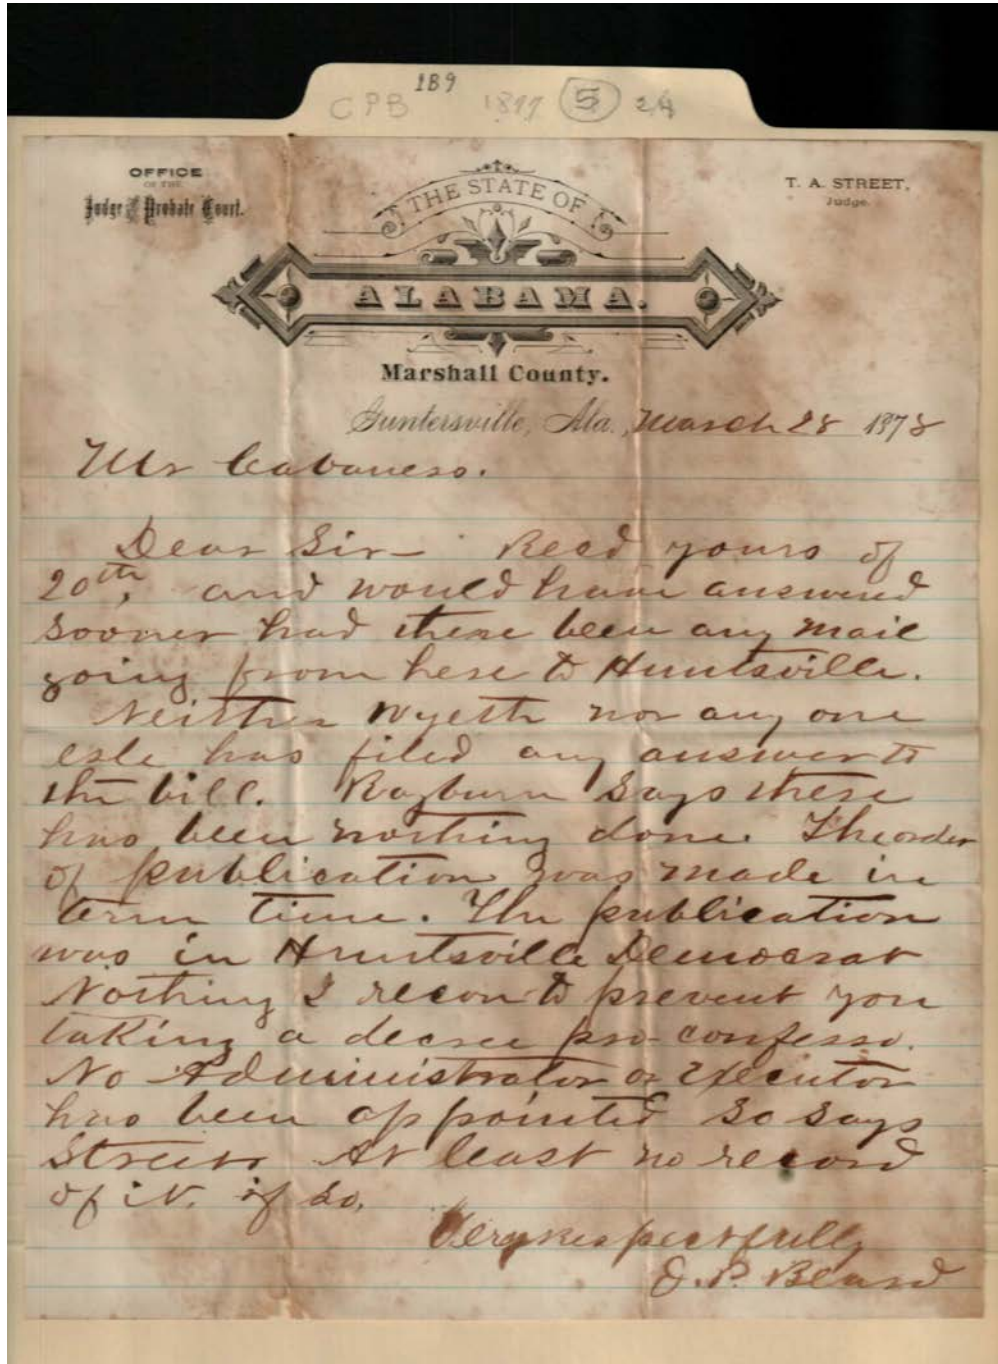 189
CPB 1877 5 24
OFFICE
OF THE
Judge of the Probate Court.
THE STATE OF
ALABAMA.
T. A. STREET,
Judge.
Marshall County.
Guntersville, Ala., March 28 1878
Mr Cabaness.
Dear Sir - Recd yours of
20th, and would have answered
sooner had there been any mail
going from here to Huntsville.
Neither Wyeth nor any one
esle has filed any answer to
the bill. Rayburn says there
has been nothing done. The order
of publication was made in
term time. The publication
was in Huntsville Democrat
Nothing I recon to prevent you
taking a decree pro-confesso.
No Administrator or Executor
has been appointed so says
Street. At least no record
of it. if so.
Very Respectfully
O. P. Beard